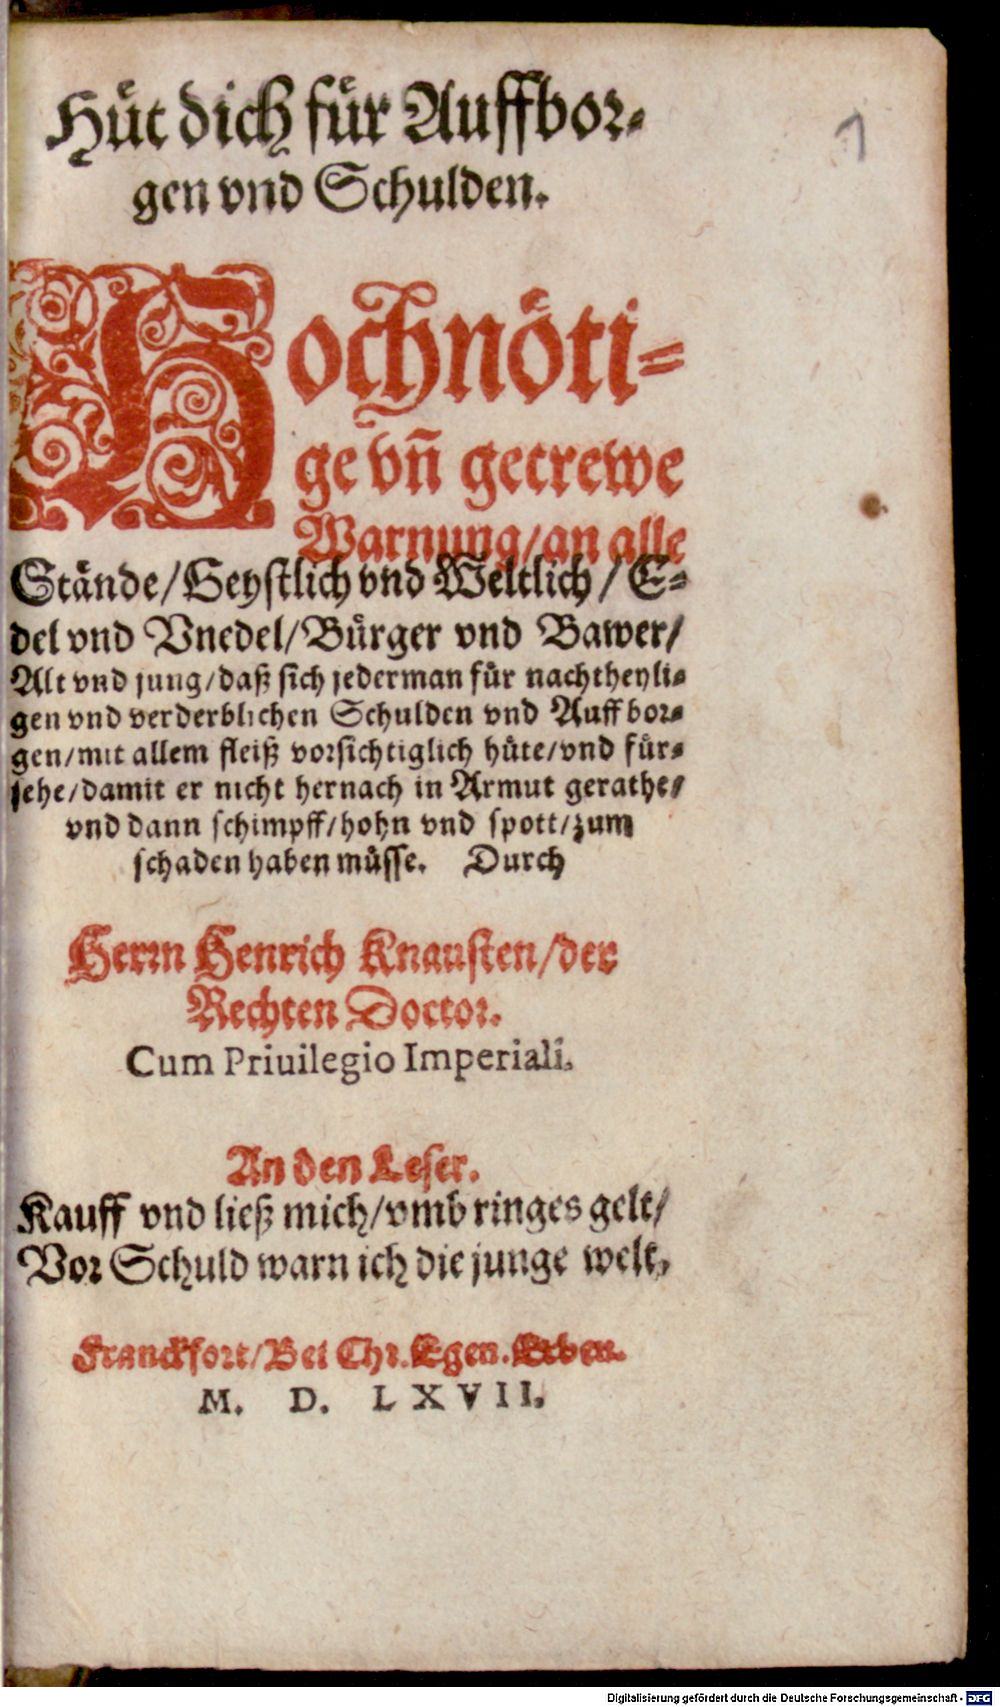 Huͤt dich fuͤr Auffbor⸗
gen vnd Schulden.
1
Hochnoͤti⸗
ge vñ getrewe
Warnung/an alle
Staͤnde/Geystlich vnd Weltlich/E⸗
del vnd Vnedel/Buͤrger vnd Bawer/
Alt vnd jung/daß sich jederman fuͤr nachtheyli⸗
gen vnd verderblichen Schulden vnd Auffbor⸗
gen/mit allem fleiß vorsichtiglich huͤte/vnd fuͤr⸗
sehe/damit er nicht hernach in Armut gerathe/
vnd dann schimpff/hohn vnd spott/zum
schaden haben muͤsse. Durch
Herrn Henrich Knausten/der
Rechten Doctor.
Cum Priuilegio Imperiali.
An den Leser.
Kauff vnd ließ mich/vmb ringes gelt/
Vor Schuld warn ich die junge welt.
Franckfort/Bei Chr. Egen. Erben.
M. D. LXVII.
Digitalisierung gefördert durch die Deutsche Forschungsgemeinschaft - DFG